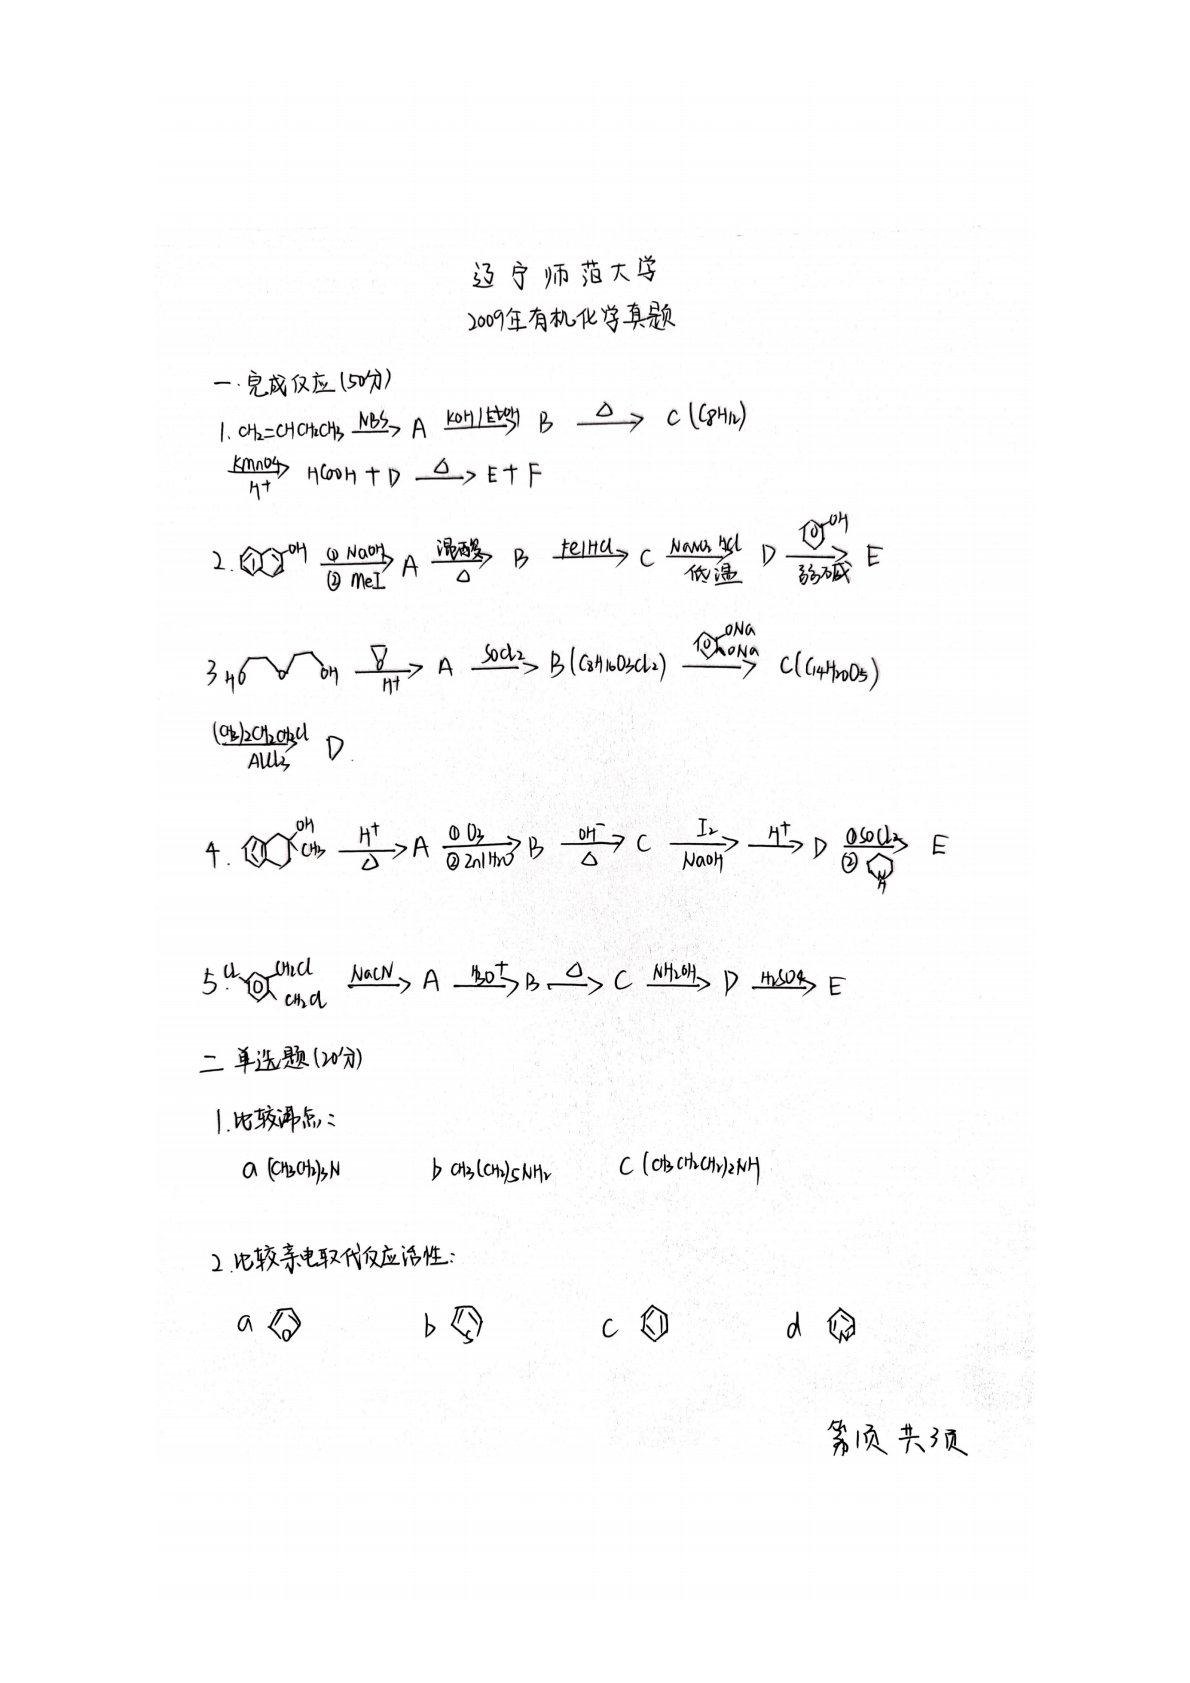 辽宁师范大学
2009年有机化学真题
一.完成反应(50分)
1. CH2=CHCH2CH3 NBS A KOH/EtOH B △ C (C8H12)
KMnO4 H+ HCOOH + D △ E + F
2. OH ① NaOH ② MeI A 混酸 △ B Fe/HCl C NaNO2 HCl 低温 D OH 弱碱 E
3 HO O OH O H+ A SOCl2 B (C8H16O3Cl2) ONa ONa C (C14H20O5)
(CH3)2CH2CH2Cl AlCl3 D.
4. OH CH3 H+ △ A ① O3 ② Zn/H2O B OH- △ C I2 NaOH H+ D ① SOCl2 ② N H E
5. Cl CH2Cl CH2Cl NaCN A H3O+ B △ C NH2OH D H2SO4 E
二 单选题(20分)
1.比较沸点:
a (CH3CH2)3N b CH3(CH2)5NH2 C (CH3CH2CH2)2NH
2.比较亲电取代反应活性:
a O b S c d N
第1页 共3页